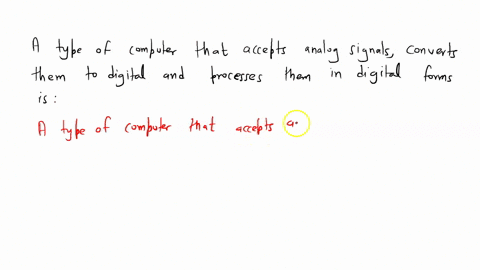 A type of computer that accepts analog signals, converts
them to digital and processes them in digital forms
is:
A type of computer that accepts a